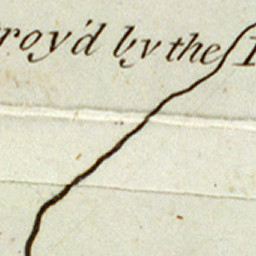 roy'd by the I